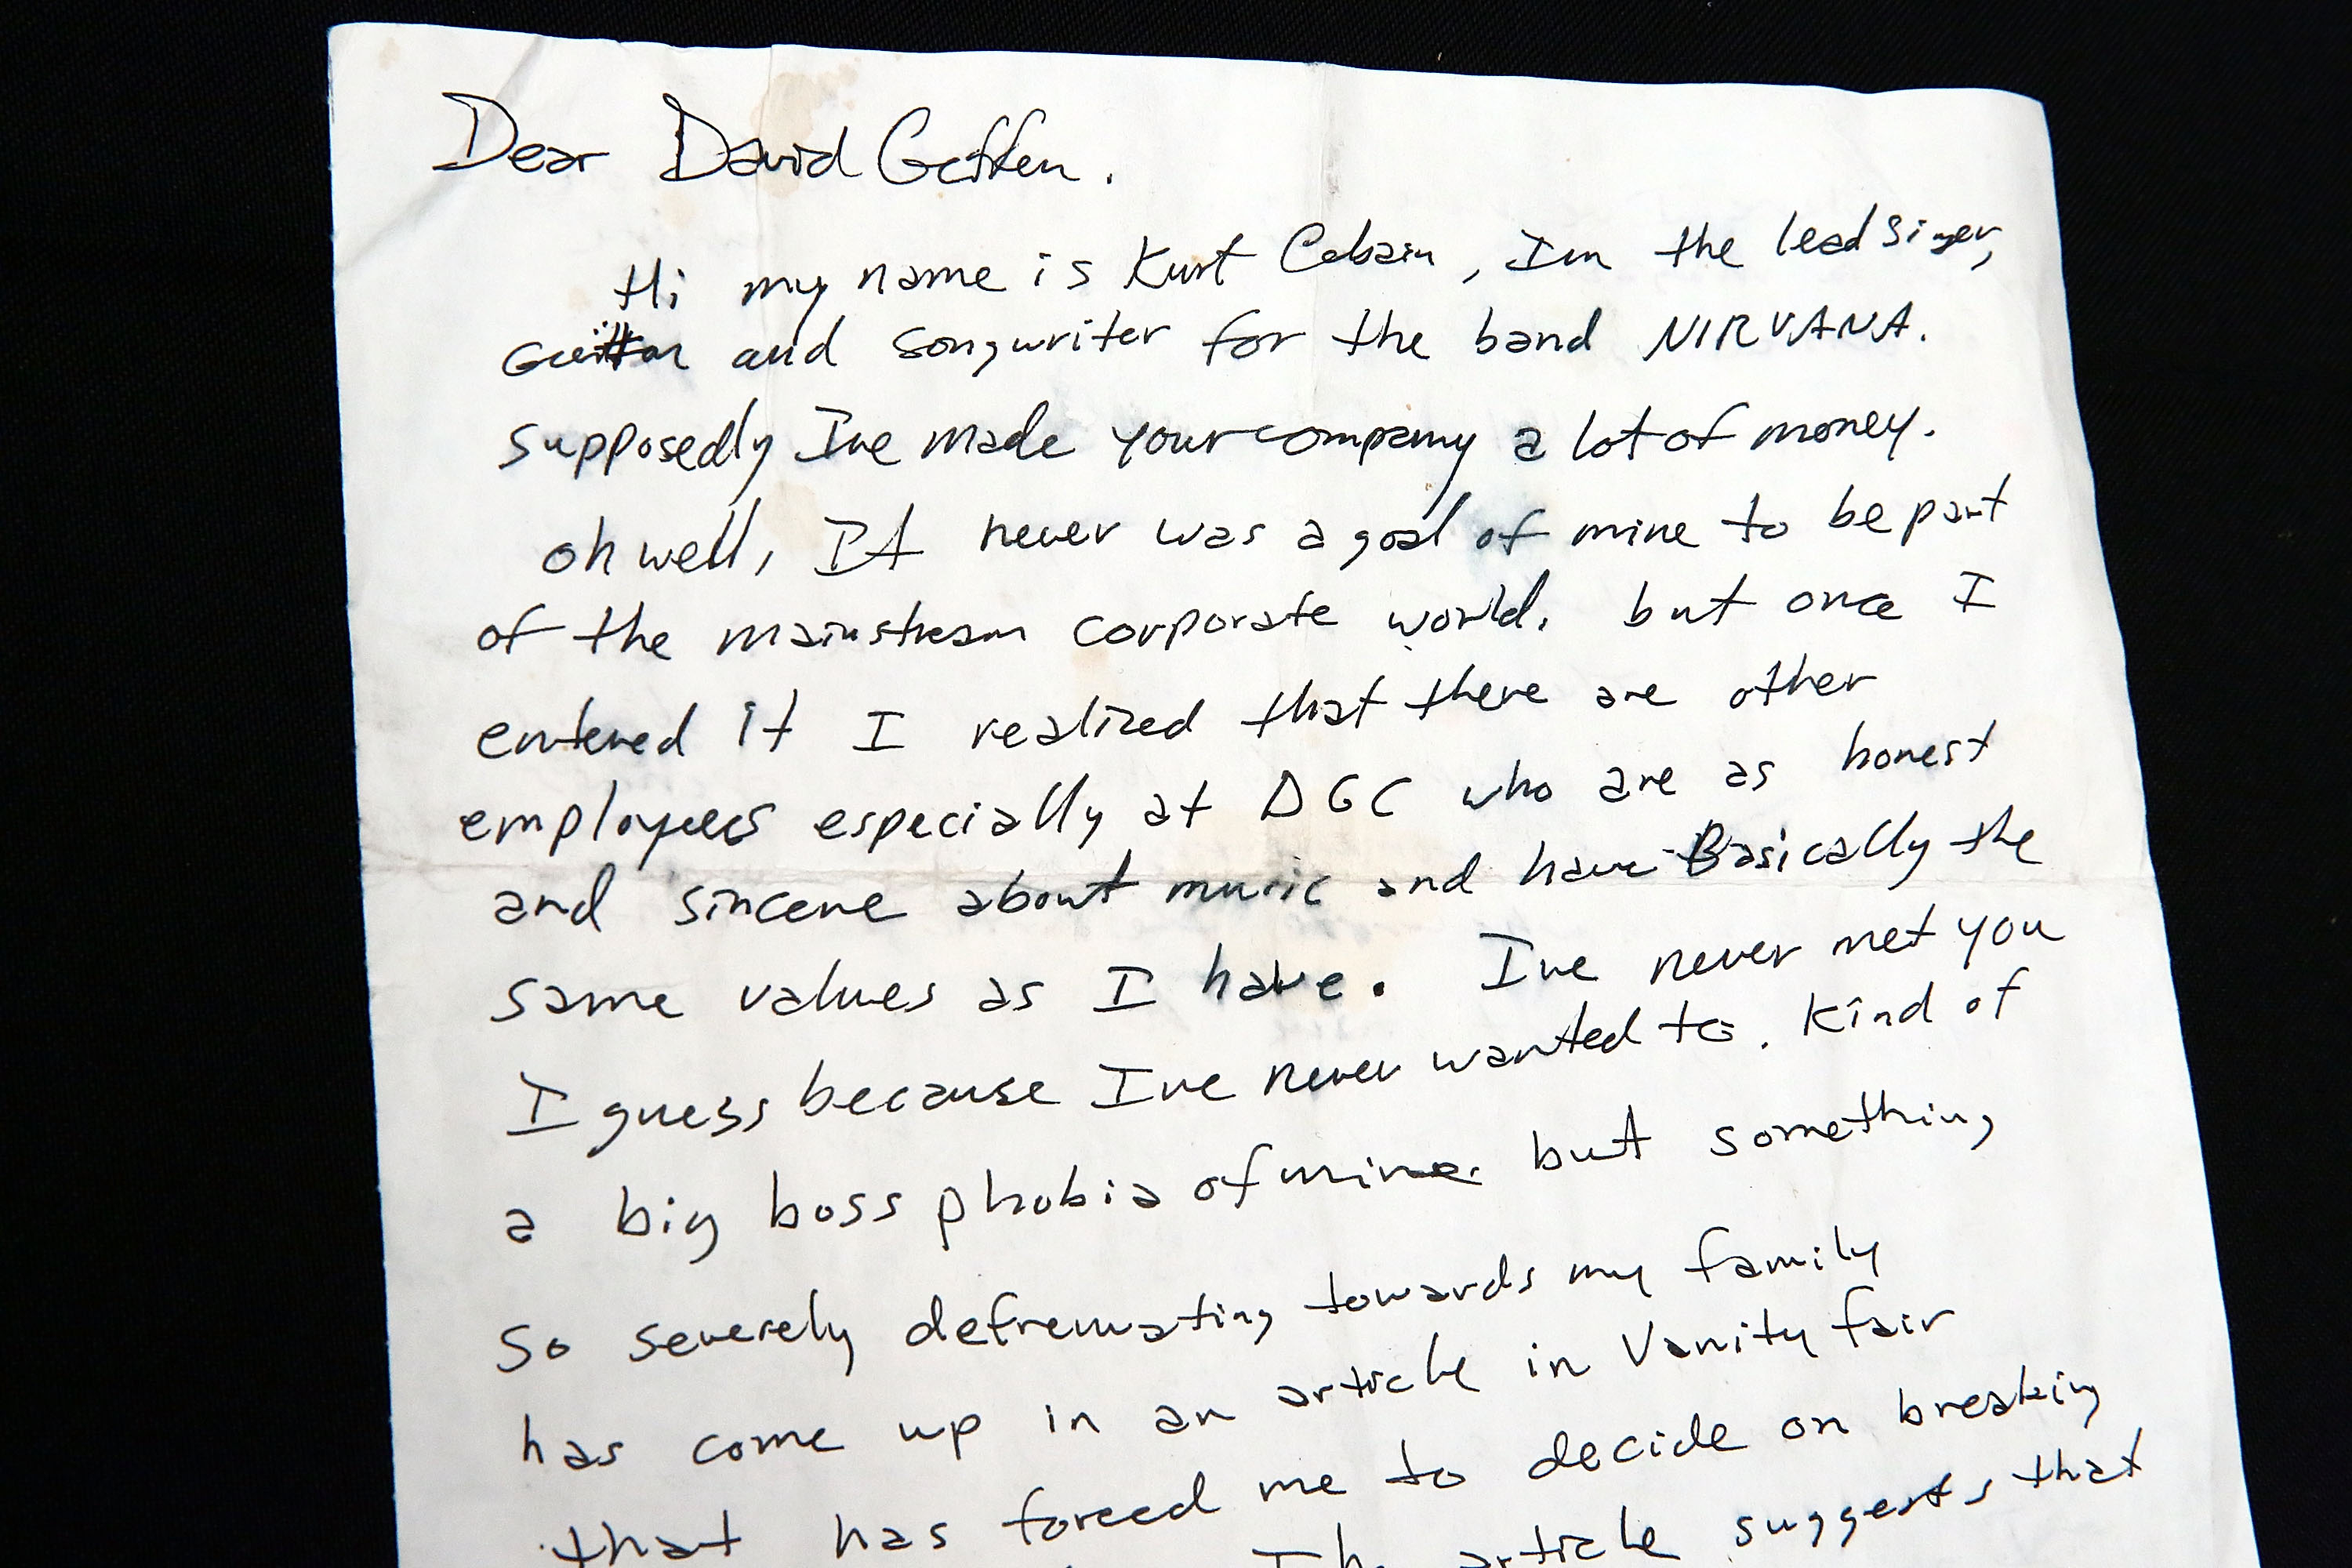 Dear David Geffen.
Hi my name is Kurt Cobain, Im the lead singer,
Guitar and songwriter for the band NIRVANA.
supposedly Ive made your company a lot of money.
oh well, It never was a goal of mine to be part
of the mainstream corporate world. but once I
entered it I realized that there are other
employees especially at DGC who are as honest
and sincere about music and have Basically the
same values as I have. Ive never met you
I guess because Ive never wanted to. Kind of
a big boss phobia of mine. but something
so severely defremating towards my family
has come up in an article in Vanity fair
that has forced me to decide on breaking
The article suggests that